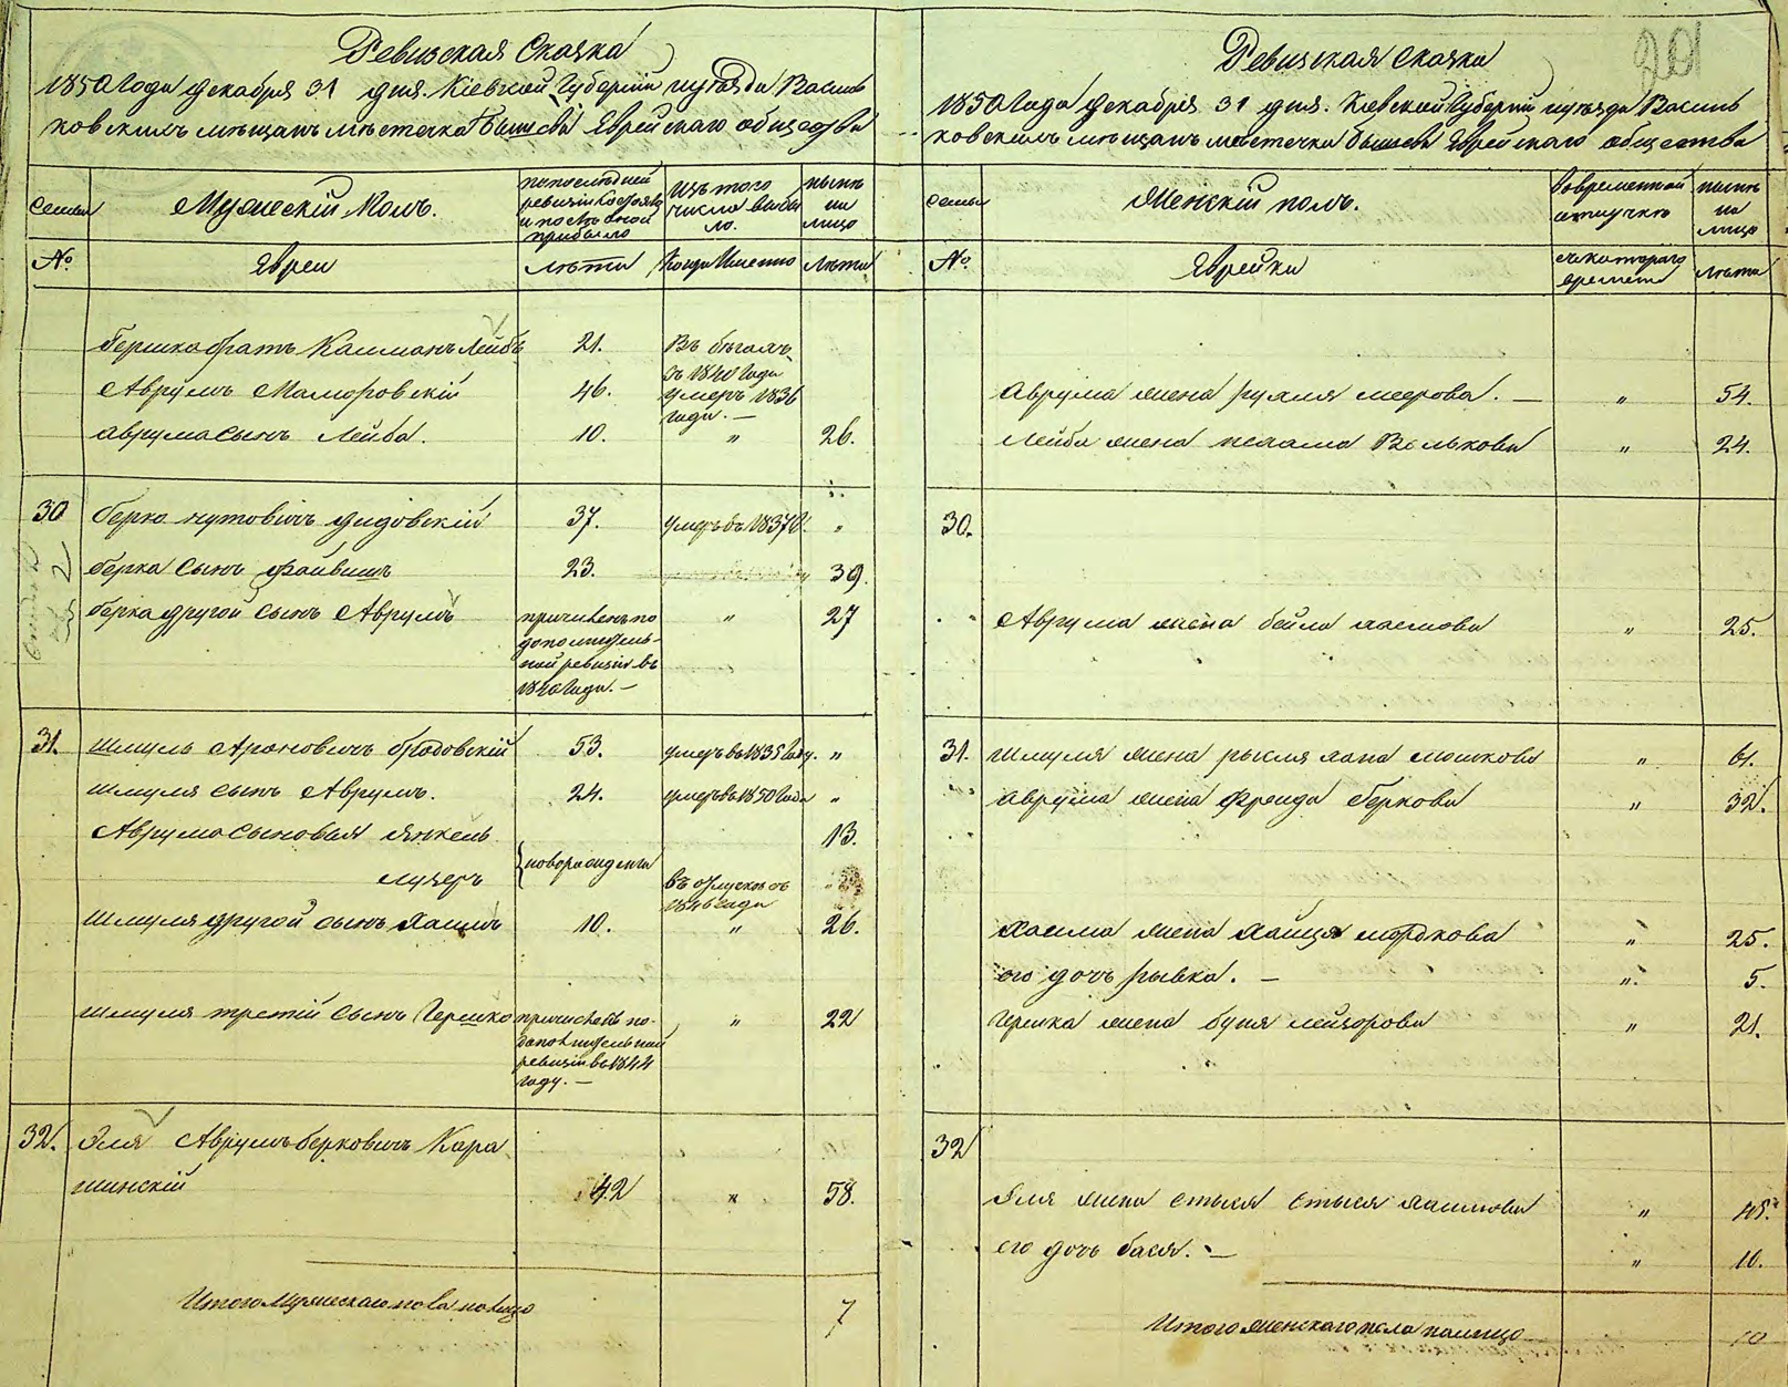 Ревизская Сказка
1850 Года декабря 31 дня. Кіевской Губерніи уезда Василь
ковскимъ мѣщанъ мѣстечка Бышева Еврейскаго общества
Семьи
Мужескій Полъ.
по последней
ревизіи состояло
и после оной
прибыло
Изъ того
числа выбы
ло.
нынѣ
на
лицо
№
Евреи
лѣта
Когда Именно
Лѣта
Гершка братъ Калманъ Лейбъ
21.
Въ бѣгахъ
съ 1840 Года
Аврумъ
46.
умеръ 1836
года. —
Аврума сынъ Лейба.
10.
"
26.
30
Берко Дидовскій
37.
умеръ въ 1837 г.
"
Берка Сынъ Файвишъ
23.
39.
2
Берка другой Сынъ Аврумъ
причисленъ по
дополнитель-
ной ревизіи въ
1840 Года. —
"
27
31.
Шмуль Ароновичъ Бродовскій
53.
умеръ въ 1835 Году.
"
Шмуля Сынъ Аврумъ.
24.
умеръ въ 1850 Года
"
Аврума Сыновья Янкель
13.
Лузеръ
новорожденны
въ отлускѣ съ
1846 года
Шмуля другой Сынъ Хаимъ
10.
"
26.
Шмуля третій Сынъ Гершко
причисленъ по
дополнительной
ревизіи въ 1844
году. —
"
22
32.
Эля Аврумъ Берковичъ Кара
шинскій
42
"
58.
Итого Мужескаго пола на лицо
7
201
Ревизская Сказка
1850 Года декабря 31 дня. Кіевской Губерніи уезда Василь
ковскимъ мѣщанъ мѣстечка Бышева Еврейскаго общества
Семьи
Женскій полъ.
Во временной
отлучкѣ
нынѣ
на
лицо
№
Еврейки
съ котораго
времени
лѣта
Аврума жена Рухля Меерова. —
"
54.
Лейба жена Волькова
"
24.
30.
Аврума жена Бейла Хаимова
"
25.
31.
Шмуля жена Рыся Хана Мошкова
"
61.
Аврума жена Фрейда Беркова
"
32.
Хаима жена Хайця Мордкова
"
25.
его дочь Рывка. —
"
5.
Гершка жена Буня Лейзорова
"
21.
32
Эля жена Стыся Стыся Хаимова
"
45.
его дочь Бася. —
"
10.
Итого женскаго пола на лицо
10